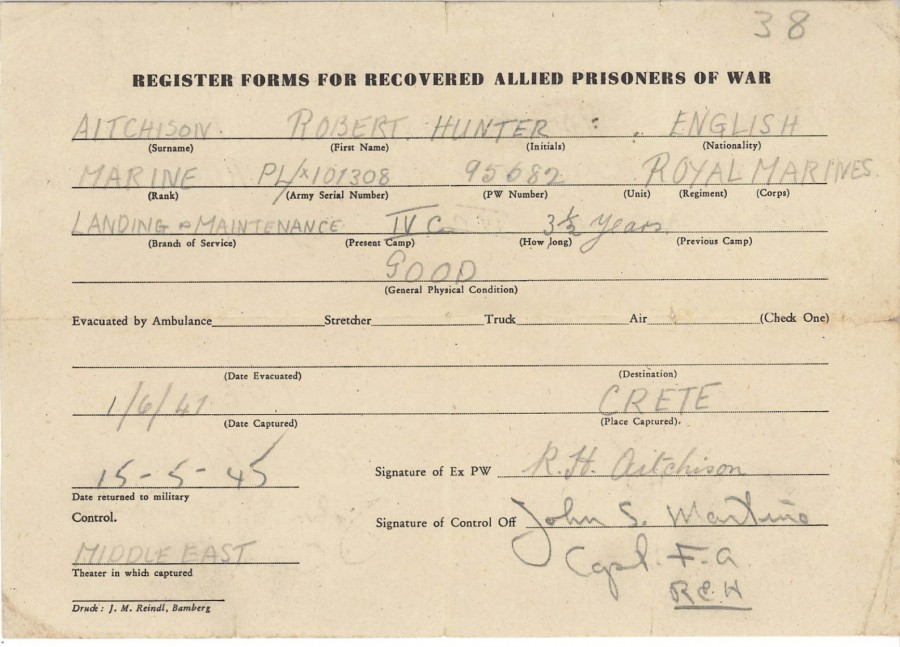 38
REGISTER FORMS FOR RECOVERED ALLIED PRISONERS OF WAR
AITCHISON. ROBERT. HUNTER : . ENGLISH
(Surname) (First Name) (Initials) (Nationality)
MARINE PL/x101308 95682 ROYAL MARINES.
(Rank) (Army Serial Number) (PW Number) (Unit) (Regiment) (Corps)
LANDING & MAINTENANCE IV C 3½ years.
(Branch of Service) (Present Camp) (How long) (Previous Camp)
GOOD
(General Physical Condition)
Evacuated by Ambulance Stretcher Truck Air (Check One)
(Date Evacuated) (Destination)
1/6/41 CRETE
(Date Captured) (Place Captured).
15-5-45 Signature of Ex PW R.H. Aitchison
Date returned to military
Control. Signature of Control Off John S. Martino
MIDDLE EAST Capt. F.A.
Theater in which captured
Druck: J. M. Reindl, Bamberg